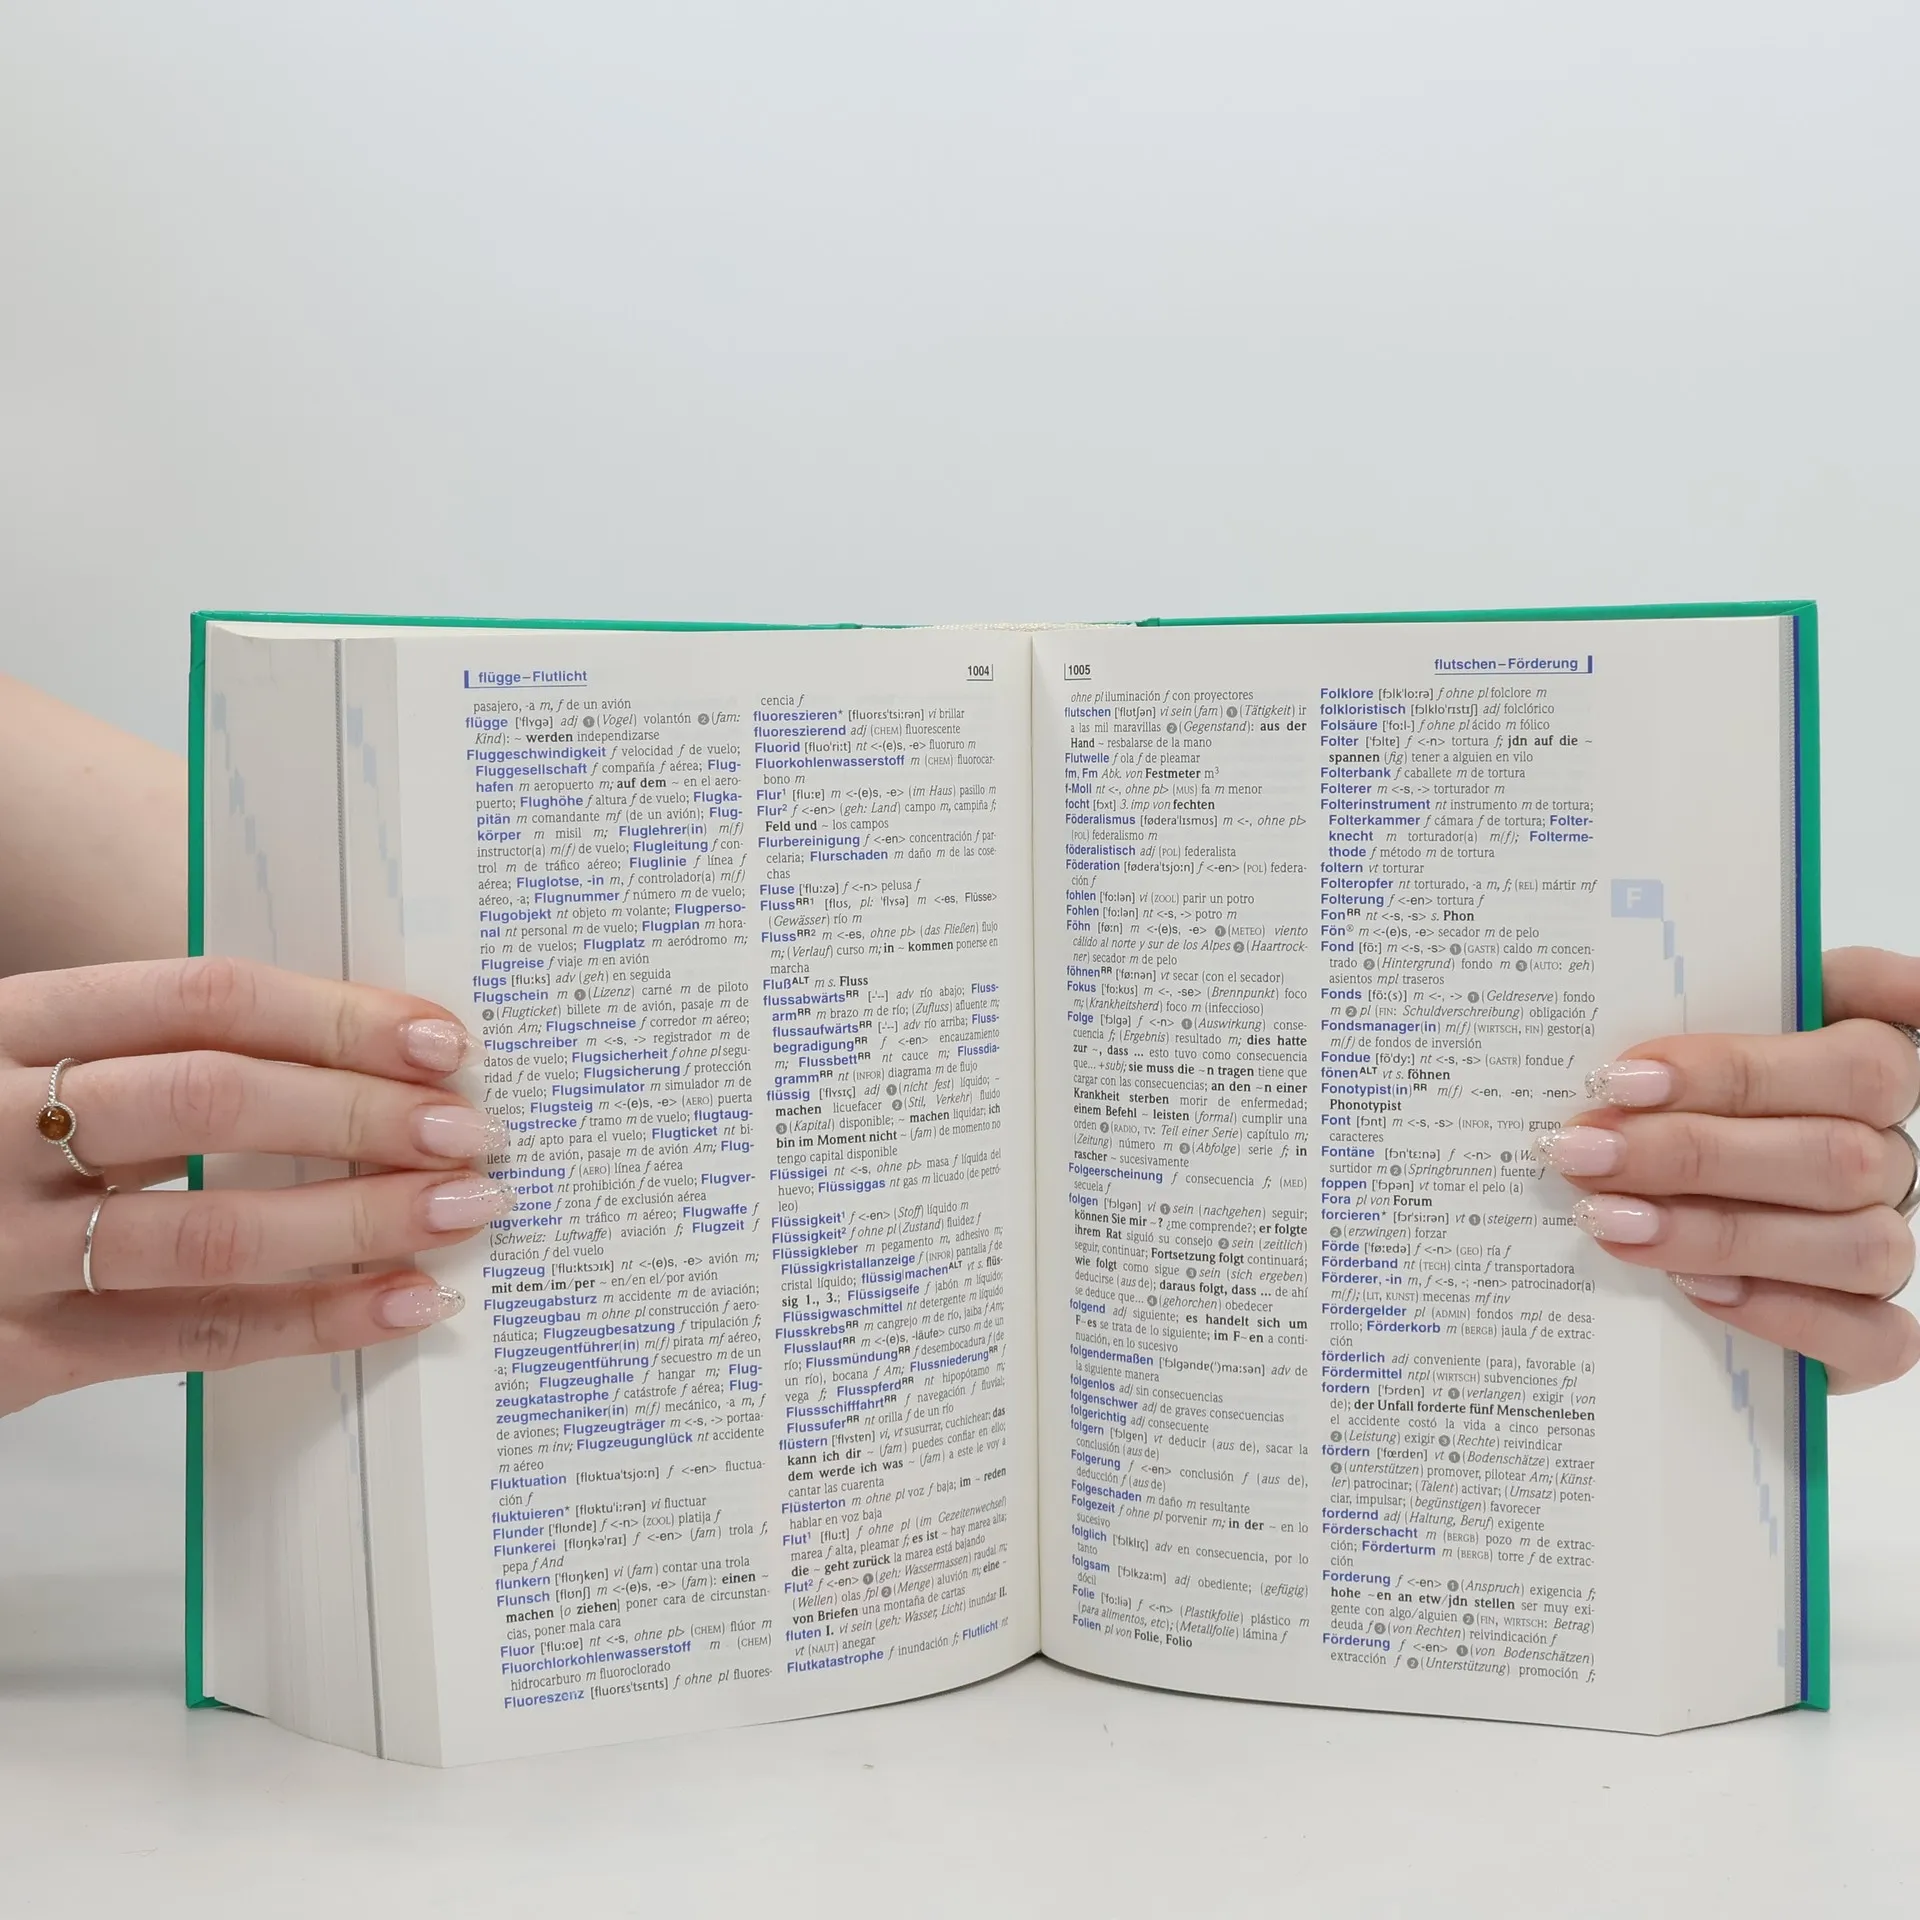 flügge–Flutlicht
1004
pasajero, -a m, f de un avión
flügge ['flyɡə] adj ❶ (Vogel) volantón ❷ (fam:
Kind): ~ werden independizarse
Fluggeschwindigkeit f velocidad f de vuelo;
Fluggesellschaft f compañía f aérea; Flug-
hafen m aeropuerto m; auf dem ~ en el aero-
puerto; Flughöhe f altura f de vuelo; Flugka-
pitän m comandante mf (de un avión); Flug-
körper m misil m; Fluglehrer(in) m(f)
instructor(a) m(f) de vuelo; Flugleitung f con-
trol m de tráfico aéreo; Fluglinie f línea f
aérea; Fluglotse, -in m, f controlador(a) m(f)
aéreo, -a; Flugnummer f número m de vuelo;
Flugobjekt nt objeto m volante; Flugperso-
nal nt personal m de vuelo; Flugplan m hora-
rio m de vuelos; Flugplatz m aeródromo m;
Flugreise f viaje m en avión
flugs [flu:ks] adv (geh) en seguida
Flugschein m ❶ (Lizenz) carné m de piloto
❷ (Flugticket) billete m de avión, pasaje m de
avión Am; Flugschneise f corredor m aéreo;
Flugschreiber m <-s, -> registrador m de
datos de vuelo; Flugsicherheit f ohne pl segu-
ridad f de vuelo; Flugsicherung f protección
f de vuelo; Flugsimulator m simulador m de
vuelos; Flugsteig m <-(e)s, -e> (AERO) puerta
lugstrecke f tramo m de vuelo; flugtaug-
adj apto para el vuelo; Flugticket nt bi-
llete m de avión, pasaje m de avión Am; Flug-
verbindung f (AERO) línea f aérea
verbot nt prohibición f de vuelo; Flugver-
szone f zona f de exclusión aérea
lugverkehr m tráfico m aéreo; Flugwaffe f
(Schweiz: Luftwaffe) aviación f; Flugzeit f
duración f del vuelo
Flugzeug ['flu:ktsɔɪk] nt <-(e)s, -e> avión m;
mit dem/im/per ~ en/en el/por avión
Flugzeugabsturz m accidente m de aviación;
Flugzeugbau m ohne pl construcción f aero-
náutica; Flugzeugbesatzung f tripulación f;
Flugzeugentführer(in) m(f) pirata mf aéreo,
-a; Flugzeugentführung f secuestro m de un
avión; Flugzeughalle f hangar m; Flug-
zeugkatastrophe f catástrofe f aérea; Flug-
zeugmechaniker(in) m(f) mecánico, -a m, f
de aviones; Flugzeugträger m <-s, -> portaa-
viones m inv; Flugzeugunglück nt accidente
m aéreo
Fluktuation [flʊktua'tsjo:n] f <-en> fluctua-
ción f
fluktuieren* [flʊktu'i:rən] vi fluctuar
Flunder ['flʊndɐ] f <-n> (ZOOL) platija f
Flunkerei [flʊŋkə'raɪ] f <-en> (fam) trola f,
pepa f And
flunkern ['flʊŋkɐn] vi (fam) contar una trola
Flunsch [flʊnʃ] m <-(e)s, -e> (fam): einen ~
machen [o ziehen] poner cara de circunstan-
cias, poner mala cara
Fluor ['flu:oɐ] nt <-s, ohne pl> (CHEM) flúor m
Fluorchlorkohlenwasserstoff m (CHEM)
hidrocarburo m fluoroclorado
Fluoreszenz [fluorɛs'tsɛnts] f ohne pl fluores-
cencia f
fluoreszieren* [fluorɛs'tsi:rən] vi brillar
fluoreszierend adj (CHEM) fluorescente
Fluorid [fluo'ri:t] nt <-(e)s, -e> fluoruro m
Fluorkohlenwasserstoff m (CHEM) fluorocar-
bono m
Flur¹ [flu:ɐ] m <-(e)s, -e> (im Haus) pasillo m
Flur² f <-en> (geh: Land) campo m, campiña f;
Feld und ~ los campos
Flurbereinigung f <-en> concentración f par-
celaria; Flurschaden m daño m de las cose-
chas
Fluse ['flu:zə] f <-n> pelusa f
Flussᴿᴿ¹ [flʊs, pl: 'flʏsə] m <-es, Flüsse>
(Gewässer) río m
Flussᴿᴿ² m <-es, ohne pl> (das Fließen) flujo
m; (Verlauf) curso m; in ~ kommen ponerse en
marcha
Flußᴬᴸᵀ m s. Fluss
flussabwärtsᴿᴿ [-'--] adv río abajo; Fluss-
armᴿᴿ m brazo m de río; (Zufluss) afluente m;
flussaufwärtsᴿᴿ [-'--] adv río arriba; Fluss-
begradigungᴿᴿ f <-en> encauzamiento
m; Flussbettᴿᴿ nt cauce m; Flussdia-
grammᴿᴿ nt (INFOR) diagrama m de flujo
flüssig ['flʏsɪç] adj ❶ (nicht fest) líquido; ~
machen licuefacer ❷ (Stil, Verkehr) fluido
❸ (Kapital) disponible; ~ machen liquidar; ich
bin im Moment nicht ~ (fam) de momento no
tengo capital disponible
Flüssigei nt <-s, ohne pl> masa f líquida del
huevo; Flüssiggas nt gas m licuado (de petró-
leo)
Flüssigkeit¹ f <-en> (Stoff) líquido m
Flüssigkeit² f ohne pl (Zustand) fluidez f
Flüssigkleber m pegamento m, adhesivo m;
Flüssigkristallanzeige f (INFOR) pantalla f de
cristal líquido; flüssig|machenᴬᴸᵀ vt s. flüs-
sig 1., 3.; Flüssigseife f jabón m líquido;
Flüssigwaschmittel nt detergente m líquido
Flusskrebsᴿᴿ m cangrejo m de río, jaiba f Am;
Flusslaufᴿᴿ m <-(e)s, -läufe> curso m de un
río; Flussmündungᴿᴿ f desembocadura f (de
un río), bocana f Am; Flussniederungᴿᴿ f
vega f; Flusspferdᴿᴿ nt hipopótamo m;
Flussschifffahrtᴿᴿ f navegación f fluvial;
Flussuferᴿᴿ nt orilla f de un río
flüstern ['flʏstɐn] vi, vt susurrar, cuchichear; das
kann ich dir ~ (fam) puedes confiar en ello;
dem werde ich was ~ (fam) a este le voy a
cantar las cuarenta
Flüsterton m ohne pl voz f baja; im ~ reden
hablar en voz baja
Flut¹ [flu:t] f ohne pl (im Gezeitenwechsel)
marea f alta, pleamar f; es ist ~ hay marea alta;
die ~ geht zurück la marea está bajando
Flut² f <-en> ❶ (geh: Wassermassen) raudal m;
(Wellen) olas fpl ❷ (Menge) aluvión m; eine ~
von Briefen una montaña de cartas
fluten I. vi sein (geh: Wasser, Licht) inundar II.
vt (NAUT) anegar
Flutkatastrophe f inundación f; Flutlicht nt
1005
flutschen–Förderung
ohne pl iluminación f con proyectores
flutschen ['flʊtʃən] vi sein (fam) ❶ (Tätigkeit) ir
a las mil maravillas ❷ (Gegenstand): aus der
Hand ~ resbalarse de la mano
Flutwelle f ola f de pleamar
fm, Fm Abk. von Festmeter m³
f-Moll nt <-, ohne pl> (MUS) fa m menor
focht [fɔxt] 3. imp von fechten
Föderalismus [føderа'lɪsmʊs] m <-, ohne pl>
(POL) federalismo m
föderalistisch adj (POL) federalista
Föderation [fødera'tsjo:n] f <-en> (POL) federa-
ción f
fohlen ['fo:lən] vi (ZOOL) parir un potro
Fohlen ['fo:lən] nt <-s, -> potro m
Föhn [fø:n] m <-(e)s, -e> ❶ (METEO) viento
cálido al norte y sur de los Alpes ❷ (Haartrock-
ner) secador m de pelo
föhnenᴿᴿ ['fø:nən] vt secar (con el secador)
Fokus ['fo:kʊs] m <-, -se> (Brennpunkt) foco
m; (Krankheitsherd) foco m (infeccioso)
Folge ['fɔlgə] f <-n> ❶ (Auswirkung) conse-
cuencia f; (Ergebnis) resultado m; dies hatte
zur ~, dass ... esto tuvo como consecuencia
que... +subj; sie muss die ~n tragen tiene que
cargar con las consecuencias; an den ~n einer
Krankheit sterben morir de enfermedad;
einem Befehl ~ leisten (formal) cumplir una
orden ❷ (RADIO, TV: Teil einer Serie) capítulo m;
(Zeitung) número m ❸ (Abfolge) serie f; in
rascher ~ sucesivamente
Folgeerscheinung f consecuencia f; (MED)
secuela f
folgen ['fɔlgən] vi ❶ sein (nachgehen) seguir;
können Sie mir ~? ¿me comprende?; er folgte
ihrem Rat siguió su consejo ❷ sein (zeitlich)
seguir, continuar; Fortsetzung folgt continuará;
wie folgt como sigue ❸ sein (sich ergeben)
deducirse (aus de); daraus folgt, dass ... de ahí
se deduce que... ❹ (gehorchen) obedecer
folgend adj siguiente; es handelt sich um
F~es se trata de lo siguiente; im F~en a conti-
nuación, en lo sucesivo
folgendermaßen ['fɔlgəndɐ(')ma:sən] adv de
la siguiente manera
folgenlos adj sin consecuencias
folgenschwer adj de graves consecuencias
folgerichtig adj consecuente
folgern ['fɔlgɐn] vt deducir (aus de), sacar la
conclusión (aus de)
Folgerung f <-en> conclusión f (aus de),
deducción f (aus de)
Folgeschaden m daño m resultante
Folgezeit f ohne pl porvenir m; in der ~ en lo
sucesivo
folglich ['fɔlklɪç] adv en consecuencia, por lo
tanto
folgsam ['fɔlkza:m] adj obediente; (gefügig)
dócil
Folie ['fo:liə] f <-n> (Plastikfolie) plástico m
(para alimentos, etc); (Metallfolie) lámina f
Folien pl von Folie, Folio
Folklore [fɔlk'lo:rə] f ohne pl folclore m
folkloristisch [fɔlklo'rɪstɪʃ] adj folclórico
Folsäure ['fo:l-] f ohne pl ácido m fólico
Folter ['fɔltɐ] f <-n> tortura f; jdn auf die ~
spannen (fig) tener a alguien en vilo
Folterbank f caballete m de tortura
Folterer m <-s, -> torturador m
Folterinstrument nt instrumento m de tortura;
Folterkammer f cámara f de tortura; Folter-
knecht m torturador(a) m(f); Folterme-
thode f método m de tortura
foltern vt torturar
Folteropfer nt torturado, -a m, f; (REL) mártir mf
Folterung f <-en> tortura f
Fonᴿᴿ nt <-s, -s> s. Phon
Fön® m <-(e)s, -e> secador m de pelo
Fond [fõ:] m <-s, -s> ❶ (GASTR) caldo m concen-
trado ❷ (Hintergrund) fondo m ❸ (AUTO: geh)
asientos mpl traseros
Fonds [fõ:(s)] m <-, -> ❶ (Geldreserve) fondo
m ❷ pl (FIN: Schuldverschreibung) obligación f
Fondsmanager(in) m(f) (WIRTSCH, FIN) gestor(a)
m(f) de fondos de inversión
Fondue [fõ'dy:] nt <-s, -s> (GASTR) fondue f
fönenᴬᴸᵀ vt s. föhnen
Fonotypist(in)ᴿᴿ m(f) <-en, -en; -nen> s.
Phonotypist
Font [fɔnt] m <-s, -s> (INFOR, TYPO) grupo
caracteres
Fontäne [fɔn'tɛ:nə] f <-n> ❶
surtidor m ❷ (Springbrunnen) fuente f
foppen ['fɔpən] vt tomar el pelo (a)
Fora pl von Forum
forcieren* [fɔr'si:rən] vt ❶ (steigern) aume
❷ (erzwingen) forzar
Förde ['fø:ɐdə] f <-n> (GEO) ría f
Förderband nt (TECH) cinta f transportadora
Förderer, -in m, f <-s, -; -nen> patrocinador(a)
m(f); (LIT, KUNST) mecenas mf inv
Fördergelder pl (ADMIN) fondos mpl de desa-
rrollo; Förderkorb m (BERGB) jaula f de extrac-
ción
förderlich adj conveniente (para), favorable (a)
Fördermittel ntpl (WIRTSCH) subvenciones fpl
fordern ['fɔrdɐn] vt ❶ (verlangen) exigir (von
de); der Unfall forderte fünf Menschenleben
el accidente costó la vida a cinco personas
❷ (Leistung) exigir ❸ (Rechte) reivindicar
fördern ['fœrdɐn] vt ❶ (Bodenschätze) extraer
❷ (unterstützen) promover, pilotear Am; (Künst-
ler) patrocinar; (Talent) activar; (Umsatz) poten-
ciar, impulsar; (begünstigen) favorecer
fordernd adj (Haltung, Beruf) exigente
Förderschacht m (BERGB) pozo m de extrac-
ción; Förderturm m (BERGB) torre f de extrac-
ción
Forderung f <-en> ❶ (Anspruch) exigencia f;
hohe ~en an etw/jdn stellen ser muy exi-
gente con algo/alguien ❷ (FIN, WIRTSCH: Betrag)
deuda f ❸ (von Rechten) reivindicación f
Förderung f <-en> ❶ (von Bodenschätzen)
extracción f ❷ (Unterstützung) promoción f;
F